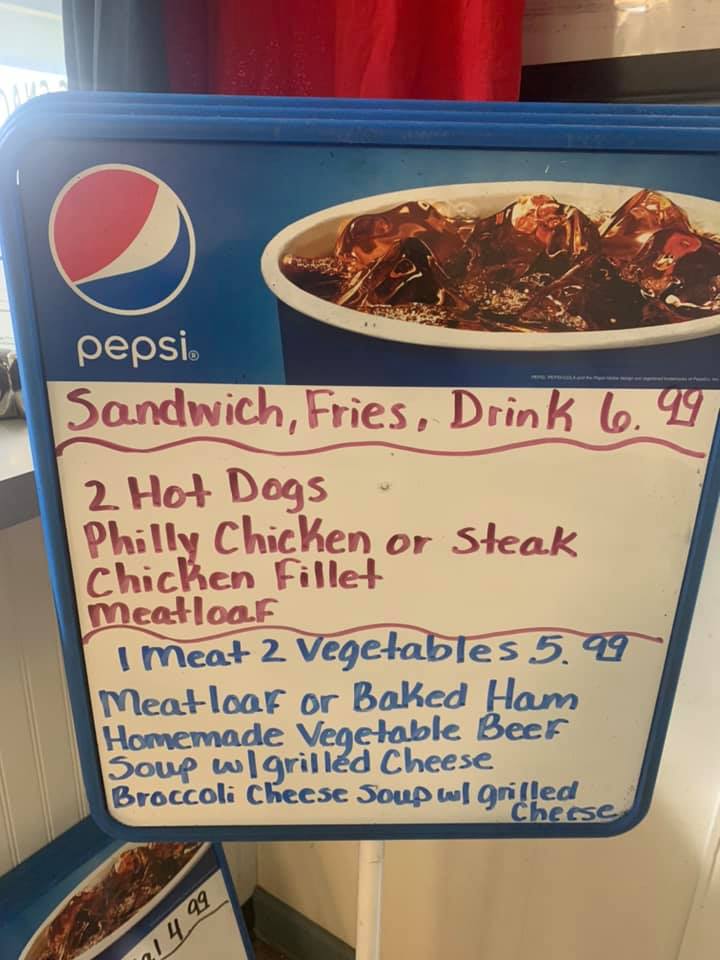 pepsi®
Sandwich, Fries, Drink 6.99
2 Hot Dogs
Philly Chicken or Steak
Chicken Fillet
Meatloaf
1 Meat 2 Vegetables 5.99
Meatloaf or Baked Ham
Homemade Vegetable Beef
Soup w/grilled Cheese
Broccoli Cheese Soup w/ grilled
Cheese
4 99